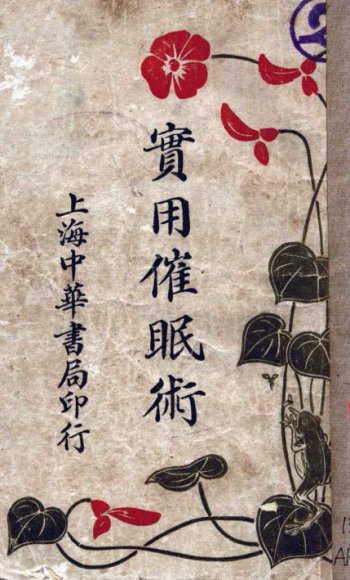 實用催眠術
上海中華書局印行